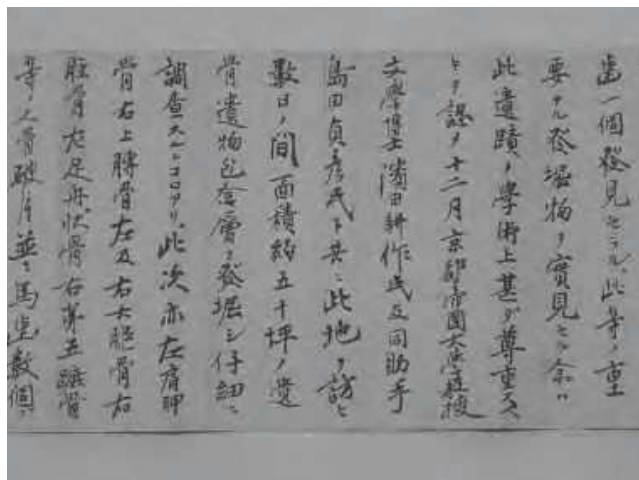 歯一個發見セラル、此等ノ重
要ナル發堀物ヲ實見セル余ハ
此遺蹟ノ學術上甚ダ尊重スベ
キヲ認メ十二月京都帝國大學教授
文學博士濱田耕作氏及同助手
島田貞彦氏ト共ニ此地ヲ訪ヒ
數日ノ間面積約五十坪ノ遺
骨遺物包含層ヲ發堀シ仔細ニ
調査スルトコロアリ、此次亦左肩胛
骨右上膊骨左及右大腿骨右
脛骨左足舟状骨右第五蹠骨
等ノ人骨破片並ニ馬歯數個ヲ